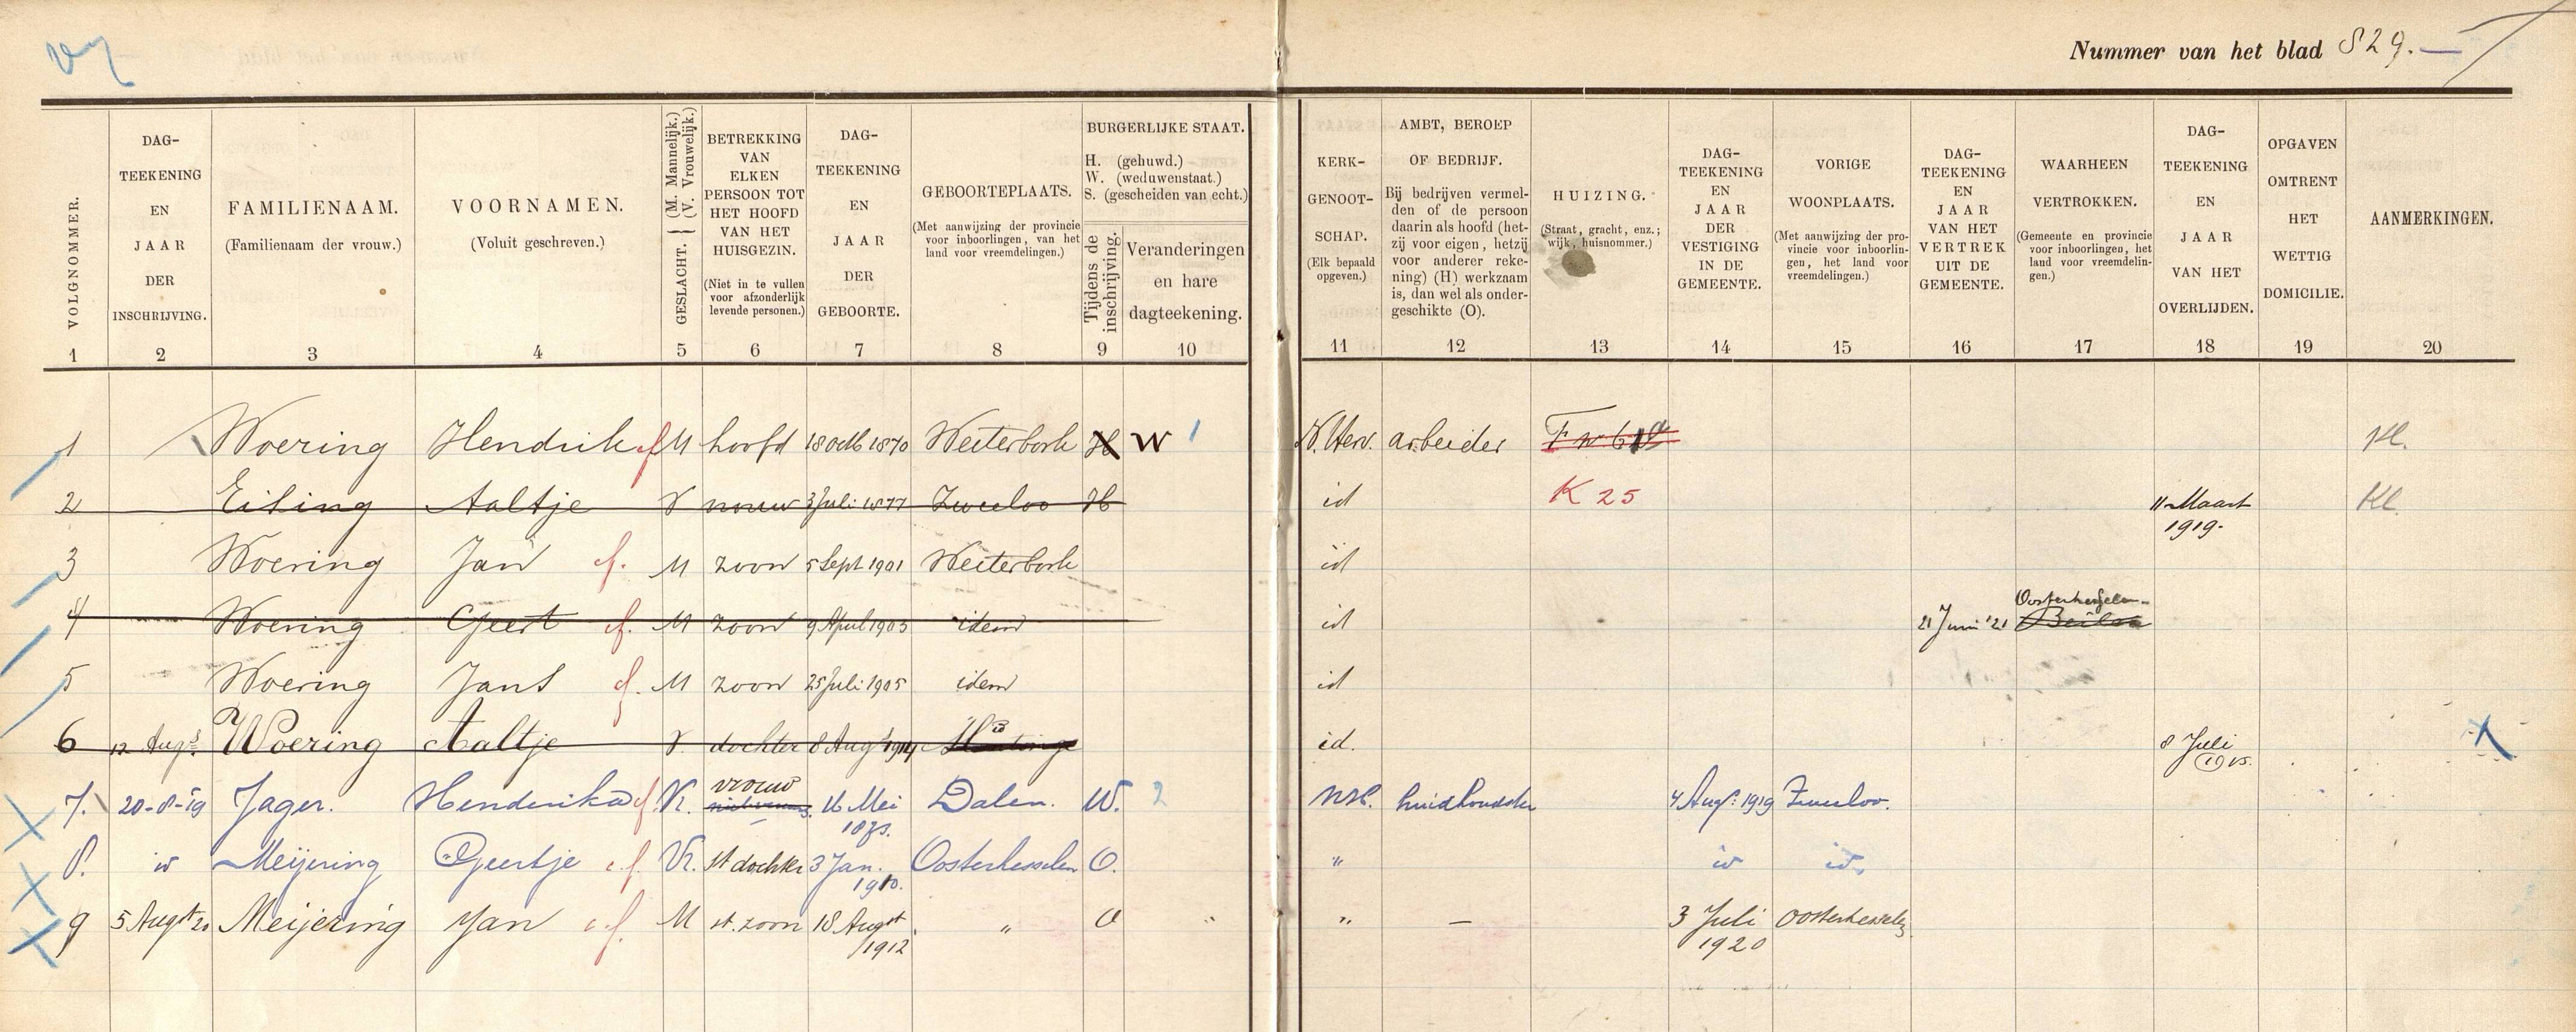 Nummer van het blad 829.
VOLGNOMMER. 1
DAG-TEEKENING EN JAAR DER INSCHRIJVING. 2
FAMILIENAAM. (Familienaam der vrouw.) 3
VOORNAMEN. (Voluit geschreven.) 4
GESLACHT. (M. Mannelijk.) (V. Vrouwelijk.) 5
BETREKKING VAN ELKEN PERSOON TOT HET HOOFD VAN HET HUISGEZIN. (Niet in te vullen voor afzonderlijk levende personen.) 6
DAG-TEEKENING EN JAAR DER GEBOORTE. 7
GEBOORTEPLAATS. (Met aanwijzing der provincie voor inboorlingen, van het land voor vreemdelingen.) 8
BURGERLIJKE STAAT. H. (gehuwd.) W. (weduwenstaat.) S. (gescheiden van echt.)
Tijdens de inschrijving. 9
Veranderingen en hare dagteekening. 10
KERK-GENOOT-SCHAP. (Elk bepaald opgeven.) 11
AMBT, BEROEP OF BEDRIJF. Bij bedrijven vermelden of de persoon daarin als hoofd (hetzij voor eigen, hetzij voor anderer rekening) (H) werkzaam is, dan wel als ondergeschikte (O). 12
HUIZING. (Straat, gracht, enz.; wijk, huisnommer.) 13
DAG-TEEKENING EN JAAR DER VESTIGING IN DE GEMEENTE. 14
VORIGE WOONPLAATS. (Met aanwijzing der provincie voor inboorlingen, het land voor vreemdelingen.) 15
DAG-TEEKENING EN JAAR VAN HET VERTREK UIT DE GEMEENTE. 16
WAARHEEN VERTROKKEN. (Gemeente en provincie voor inboorlingen, het land voor vreemdelingen.) 17
DAG-TEEKENING EN JAAR VAN HET OVERLIJDEN. 18
OPGAVEN OMTRENT HET WETTIG DOMICILIE. 19
AANMERKINGEN. 20
1 Woering Hendrik M hoofd 18 Octb 1870 Westerbork H W 1 N. Herv. arbeider Kl.
2 Eising Aaltje V vrouw 3 Juli 1877 Zweeloo H id K 25 11 Maart 1919. Kl.
3 Woering Jan M zoon 5 Sept 1901 Westerbork id
4 Woering Geert M zoon 9 April 1903 idem id 21 Juni '21 Oosterhesselen Beilen
5 Woering Jans M zoon 25 Juli 1905 idem id
6 12 Augs. Woering Aaltje V. dochter 8 Augs 1914 id. 8 Juli 1915.
7. 20-8-19 Jager. Henderika Vr. vrouw 16 Mei 1875. Dalen. W. 2 NH. huishoudster 4 Augs: 1919 Zweeloo.
8. id Meijering Geertje Vr. st dochter 3 Jan. 1910. Oosterhesselen O. " id id.
9 5 Augst 20 Meijering Jan M st. zoon 18 Augst 1912 " O " — 3 Juli 1920 Oosterhesselen